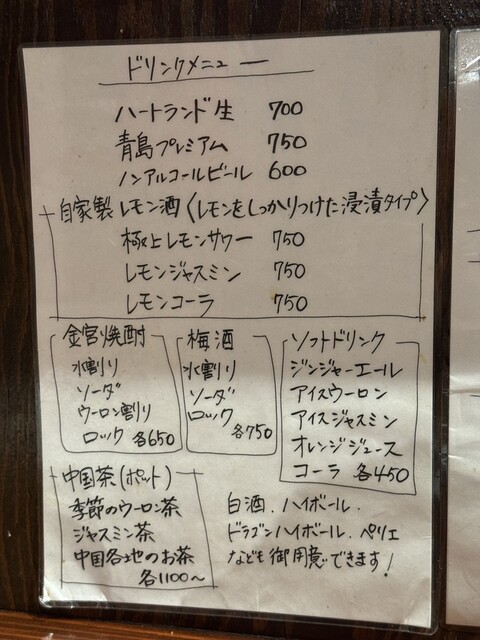 ドリンクメニュー
ハートランド生 700
青島プレミアム 750
ノンアルコールビール 600
自家製レモン酒〈レモンをしっかりつけた浸漬タイプ〉
極上レモンサワー 750
レモンジャスミン 750
レモンコーラ 750
金宮焼酎
水割り
ソーダ
ウーロン割り
ロック 各650
梅酒
水割り
ソーダ
ロック
各750
ソフトドリンク
ジンジャーエール
アイスウーロン
アイスジャスミン
オレンジジュース
コーラ 各450
中国茶(ポット)
季節のウーロン茶
ジャスミン茶
中国各地のお茶
各1100〜
白酒.ハイボール.
ドラゴンハイボール.ペリエ
なども御用意できます!